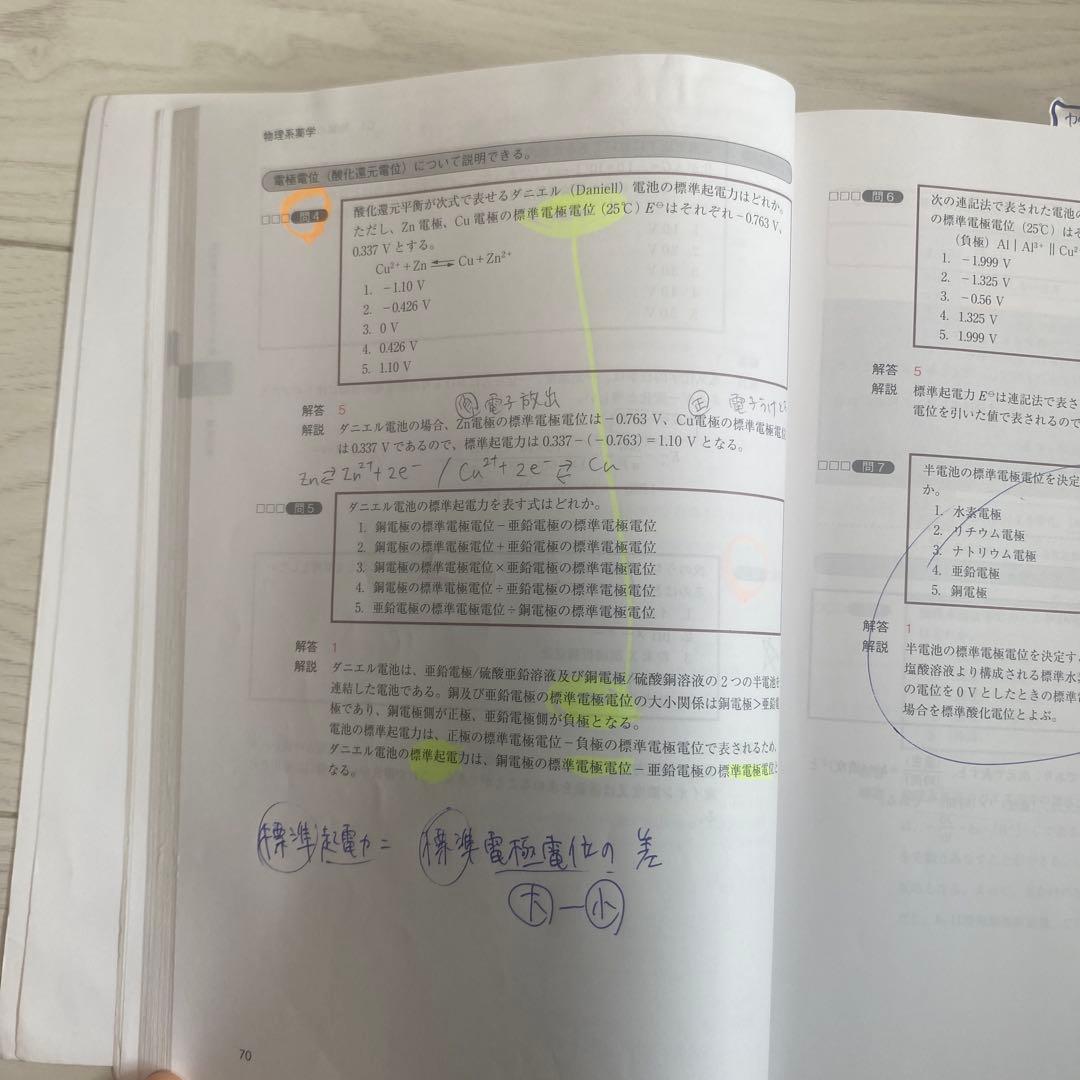 物理系薬学
電極電位（酸化還元電位）について説明できる。
□□□ 問4
酸化還元平衡が次式で表せるダニエル（Daniell）電池の標準起電力はどれか。
ただし、Zn 電極、Cu 電極の標準電極電位（25℃）E⊖はそれぞれ－0.763 V、
0.337 V とする。
Cu²⁺＋Zn ⇄ Cu＋Zn²⁺
1. －1.10 V
2. －0.426 V
3. 0 V
4. 0.426 V
5. 1.10 V
電子放出 正 電子うけとる
解答 5
解説 ダニエル電池の場合、Zn電極の標準電極電位は－0.763 V、Cu電極の標準電極電位
は0.337 Vであるので、標準起電力は 0.337－(－0.763)＝1.10 V となる。
Zn⇄Zn²⁺+2e⁻ / Cu²⁺+2e⁻⇄ Cu
□□□ 問5
ダニエル電池の標準起電力を表す式はどれか。
1. 銅電極の標準電極電位－亜鉛電極の標準電極電位
2. 銅電極の標準電極電位＋亜鉛電極の標準電極電位
3. 銅電極の標準電極電位×亜鉛電極の標準電極電位
4. 銅電極の標準電極電位÷亜鉛電極の標準電極電位
5. 亜鉛電極の標準電極電位÷銅電極の標準電極電位
解答 1
解説 ダニエル電池は、亜鉛電極/硫酸亜鉛溶液及び銅電極/硫酸銅溶液の2つの半電池を
連結した電池である。銅及び亜鉛電極の標準電極電位の大小関係は銅電極＞亜鉛電
極であり、銅電極側が正極、亜鉛電極側が負極となる。
電池の標準起電力は、正極の標準電極電位－負極の標準電極電位で表されるため、
ダニエル電池の標準起電力は、銅電極の標準電極電位－亜鉛電極の標準電極電位と
なる。
標準起電力＝ 標準電極電位の差
大－小
70
□□□ 問6
次の連記法で表された電池の
の標準電極電位（25℃）はそ
（負極）Al｜Al³⁺‖Cu²
1. －1.999 V
2. －1.325 V
3. －0.56 V
4. 1.325 V
5. 1.999 V
解答 5
解説 標準起電力 E⊖は連記法で表さ
電位を引いた値で表されるので
□□□ 問7
半電池の標準電極電位を決定
か。
1. 水素電極
2. リチウム電極
3. ナトリウム電極
4. 亜鉛電極
5. 銅電極
解答 1
解説 半電池の標準電極電位を決定する
塩酸溶液より構成される標準水素
の電位を 0 V としたときの標準
場合を標準酸化電位とよぶ。